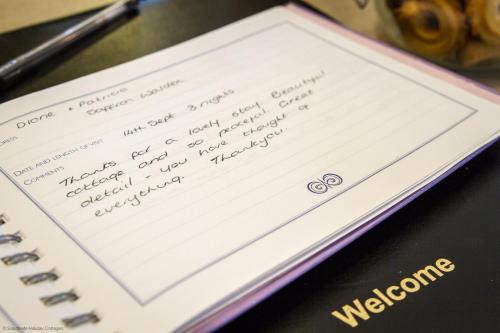 Diane & Patricia
Saffron Walden
DRESS
14th Sept 3 nights
DATE AND LENGTH OF VISIT
COMMENTS
Thanks for a lovely stay. Beautiful
cottage and so peaceful. Great
detail - you have thought of
everything. Thankyou.
Welcome
© Sandpiper Holiday Cottages